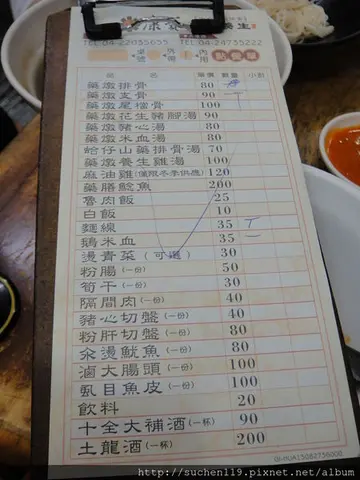 養生
TEL:04-22035655 TEL:04-24735222
桌號 外帶 內用 點餐單
品 名 單價 數量 小計
藥燉排骨 80
藥燉支骨 90
藥燉尾椎骨 100
藥燉花生豬腳湯 90
藥燉豬心湯 80
藥燉米血湯 80
蛤仔山藥排骨湯 70
藥燉養生雞湯 100
麻油雞(僅限冬季供應) 120
藥膳鯰魚 200
魯肉飯 25
白飯 10
麵線 35
鵝米血 35
燙青菜(可選) 30
粉腸(一份) 50
筍干(一份) 30
隔間肉(一份) 40
豬心切盤(一份) 40
粉肝切盤(一份) 80
汆燙魷魚(一份) 80
滷大腸頭(一份) 100
虱目魚皮(一份) 100
飲料 20
十全大補酒(一杯) 90
土龍酒(一杯) 200
http://suchen119.pixnet.net/album